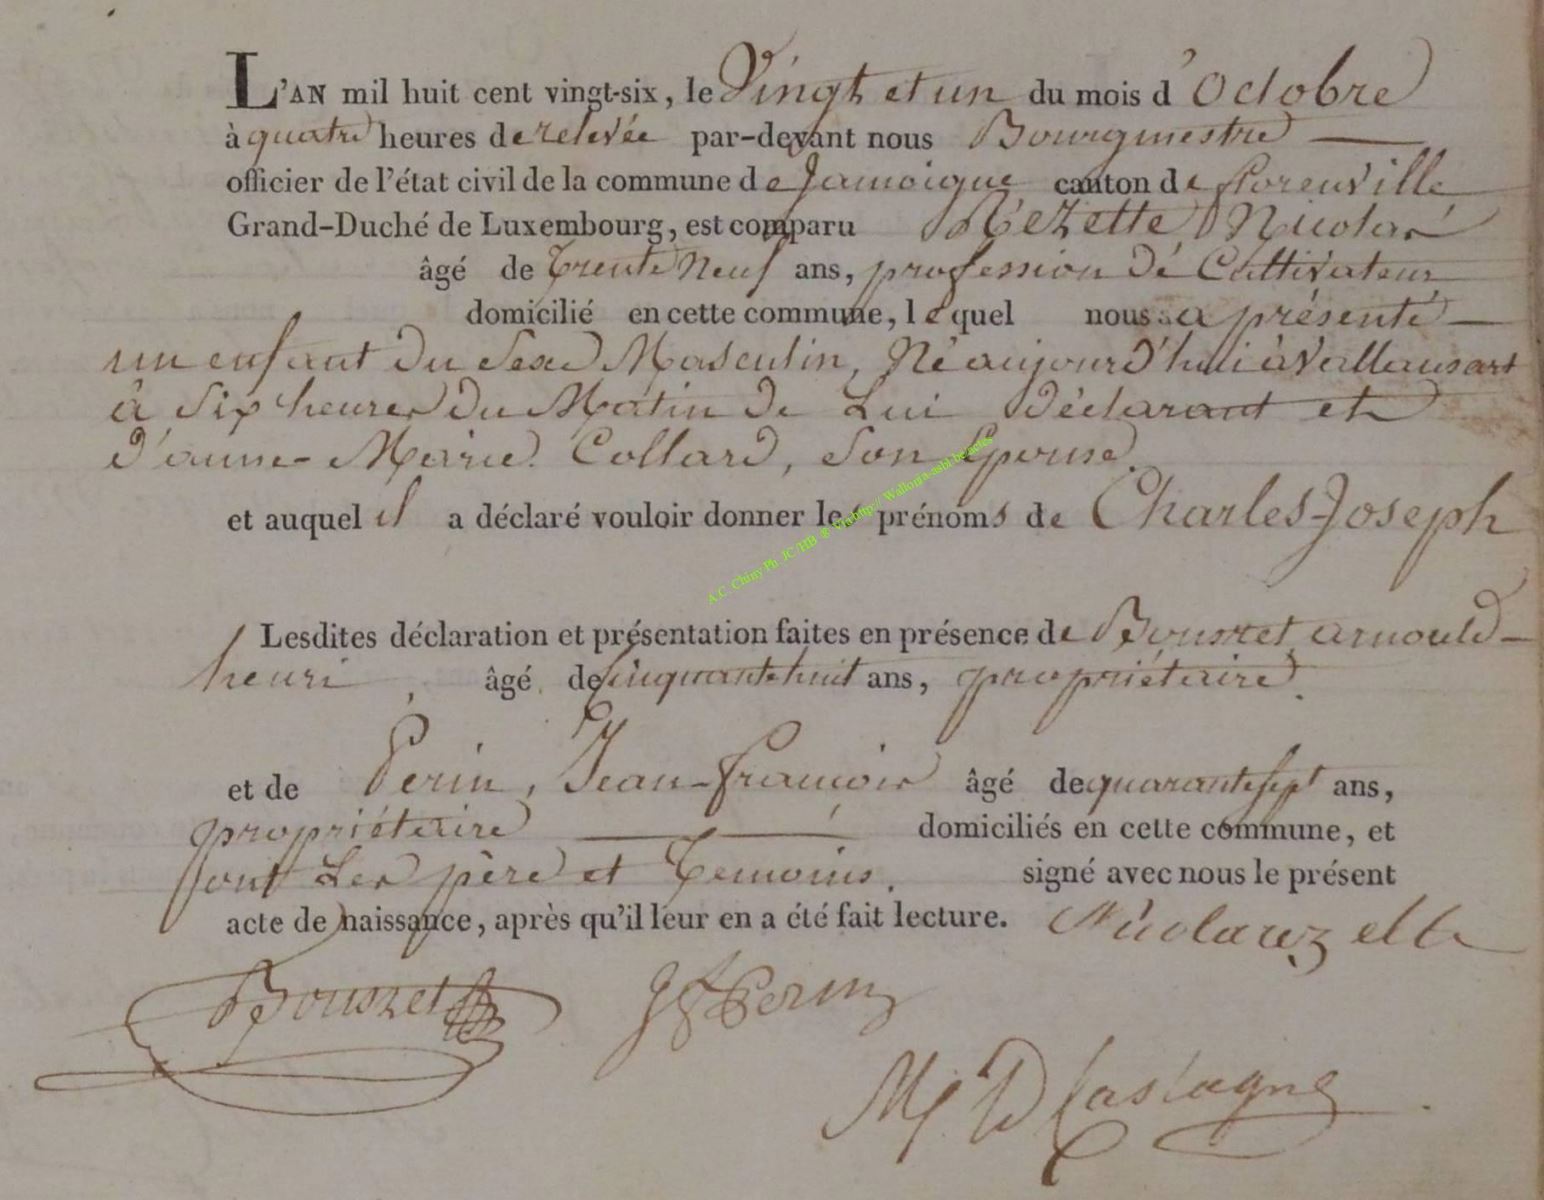 L'AN mil huit cent vingt-six, le Vingt et un du mois d'Octobre
à quatre heures de relevée par-devant nous Bourgmestre
officier de l'état civil de la commune de Jamoigne canton de Florenville
Grand-Duché de Luxembourg, est comparu Rézette Nicolas
âgé de Trente Neuf ans, profession de Cultivateur
domicilié en cette commune, lequel nous a présenté
un enfant du Sexe Masculin, Né aujourd'hui à Vallansart
à Six heures du Matin de Lui déclarant et
d'anne-Marie Collard, Son Epouse.
et auquel il a déclaré vouloir donner les prénoms de Charles-Joseph
A.C Chiny Ph JC/HB ® Via http:// Wallonia-asbl.be/actes
Lesdites déclaration et présentation faites en présence de Bouszet, arnould-
henri, âgé de Cinquante huit ans, propriétaire.
et de Perin, Jean-francois âgé de quarante sept ans,
propriétaire domiciliés en cette commune, et
ont Les père et Temoins. signé avec nous le présent
acte de naissance, après qu'il leur en a été fait lecture.
Bouszet JF Perin